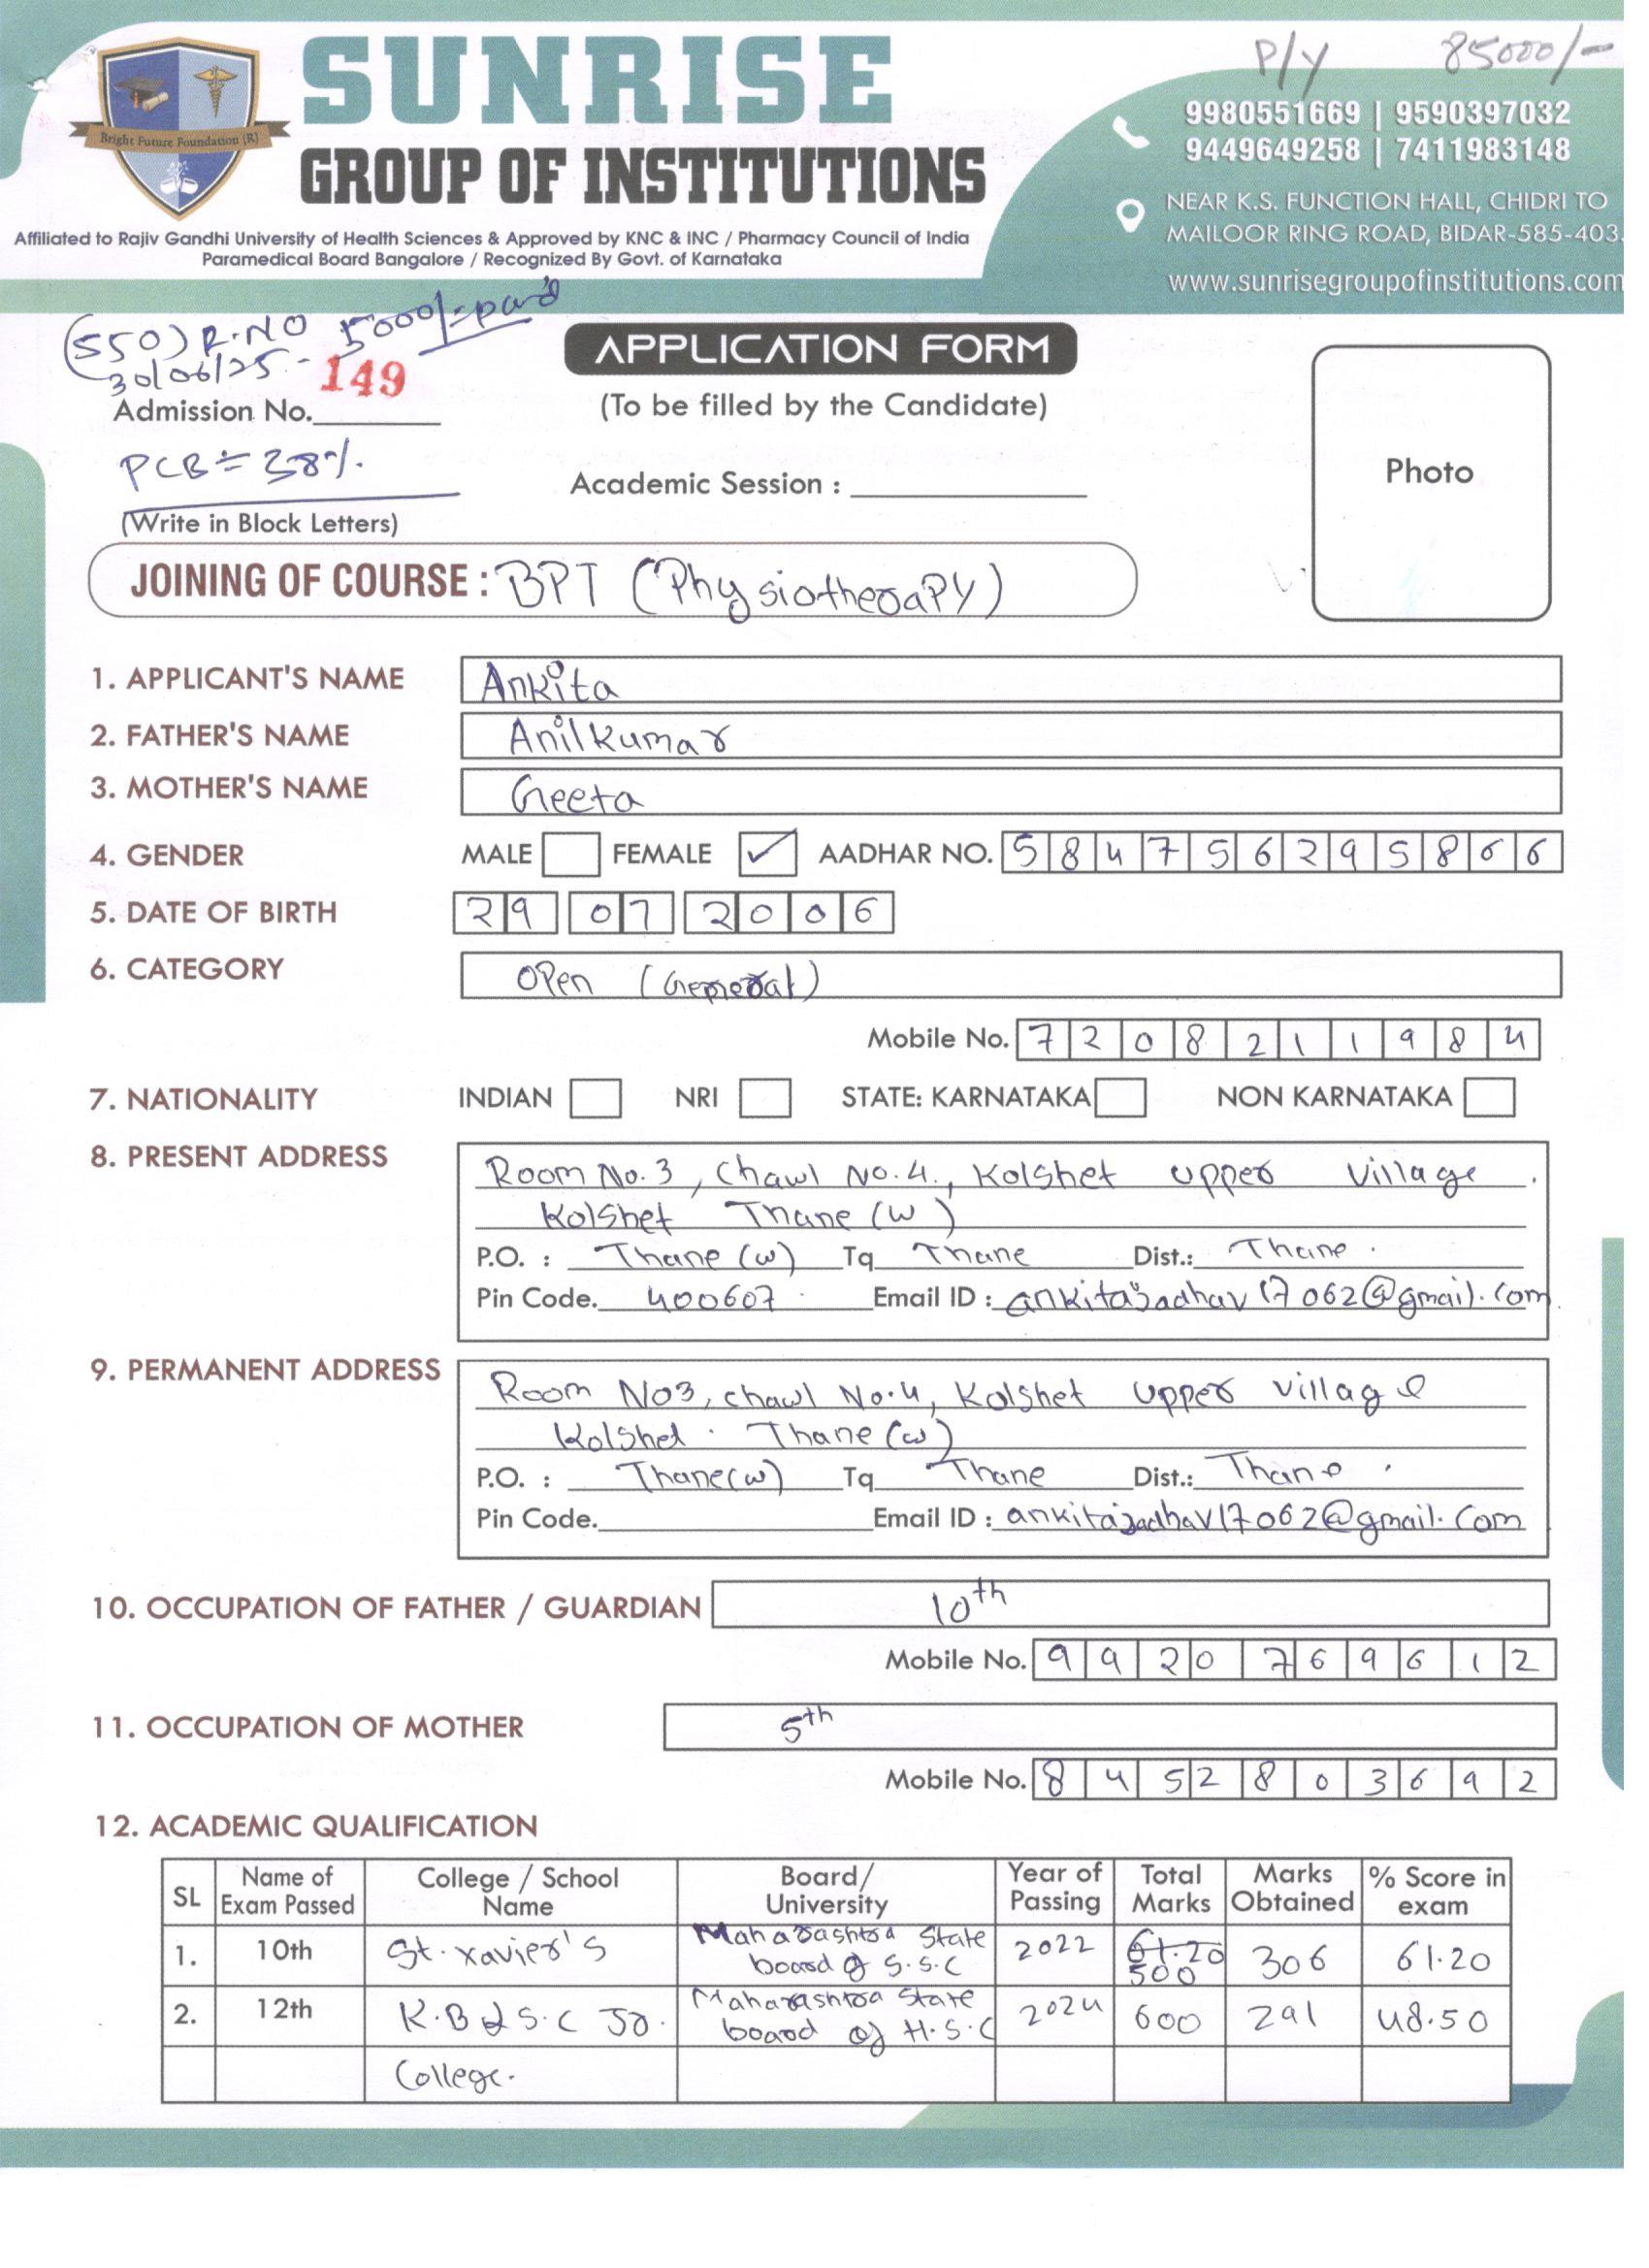 P/Y 85000/-
SUNRISE
GROUP OF INSTITUTIONS
Bright Future Foundation (R)
Affiliated to Rajiv Gandhi University of Health Sciences & Approved by KNC & INC / Pharmacy Council of India
Paramedical Board Bangalore / Recognized By Govt. of Karnataka
9980551669 | 9590397032
9449649258 | 7411983148
NEAR K.S. FUNCTION HALL, CHIDRI TO
MAILOOR RING ROAD, BIDAR-585-403.
www.sunrisegroupofinstitutions.com
(550) R.NO 5000/- paid
30/06/25.-
149
Admission No.
APPLICATION FORM
(To be filled by the Candidate)
PCB = 38%.
Academic Session :
Photo
(Write in Block Letters)
JOINING OF COURSE : BPT (PhysiotheraPY)
1. APPLICANT'S NAME Ankita
2. FATHER'S NAME Anilkumar
3. MOTHER'S NAME Geeta
4. GENDER MALE FEMALE ✓ AADHAR NO. 584756295866
5. DATE OF BIRTH 29 07 2006
6. CATEGORY OPen (General)
Mobile No. 7208211984
7. NATIONALITY INDIAN NRI STATE: KARNATAKA NON KARNATAKA
8. PRESENT ADDRESS Room No. 3, Chawl No. 4., Kolshet upper Village.
Kolshet Thane (w)
P.O. : Thane (w) Tq Thane Dist.: Thane.
Pin Code. 400607. Email ID : ankitajadhav17062@gmail.com
9. PERMANENT ADDRESS Room No3, chawl No.4, Kolshet upper village
Kolshet. Thane (w)
P.O. : Thane(w) Tq Thane Dist.: Thane.
Pin Code. Email ID : ankitajadhav17062@gmail.com
10. OCCUPATION OF FATHER / GUARDIAN 10th
Mobile No. 9920769612
11. OCCUPATION OF MOTHER 5th
Mobile No. 8452803692
12. ACADEMIC QUALIFICATION
SL Name of Exam Passed College / School Name Board/ University Year of Passing Total Marks Marks Obtained % Score in exam
1. 10th St. Xavier's Maharashtra State board of S.S.C 2022 61.20 500 306 61.20
2. 12th K.B & S.C Jr. College. Maharashtra State board of H.S.C 2024 600 291 48.50